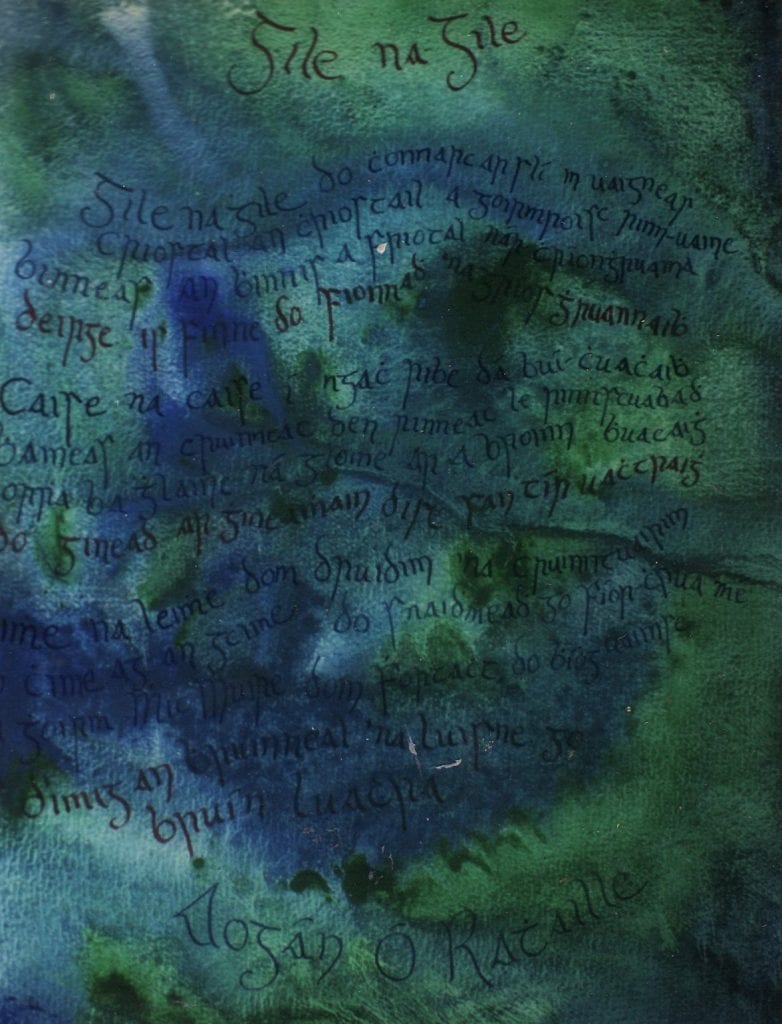 Gile na Gile
Gile na gile do ċonnarc ar slí in uaigneas
Criostal an ċriostail a goirmroisc rinn-uaine
binneas an binnis a friotal nár ċríonġruama
deirge is finne do fionnad 'na gríos ġruannaib
Caise na caise i ngaċ ribe dá buí-ċuaċaib
baineas an cruinneac den rinneac le rinnscuabad
orra ba glaine ná gloine ar a broinn buacaiġ
do ginead ar gineamain di-se san tír uaċtraiġ
na leime dom druidim 'na
cime ag an geime do snaidmead go fíor-ċrua me
goirm Mic Muire dom fortaċt do bíog uaimse
d'imig an bruinneal 'na luisne go
bruín luaċra
Aogán Ó Raṫaille